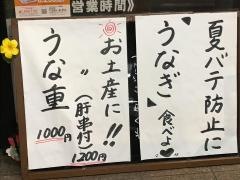 営業時間
夏バテ防止に
"うなぎ"食べよ♥
お土産に!!
うな重 1000円
〃(肝串付)1200円